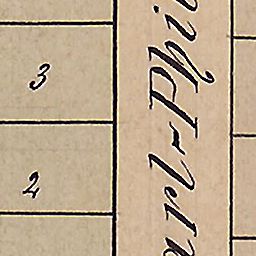 3
2
arl-Phi